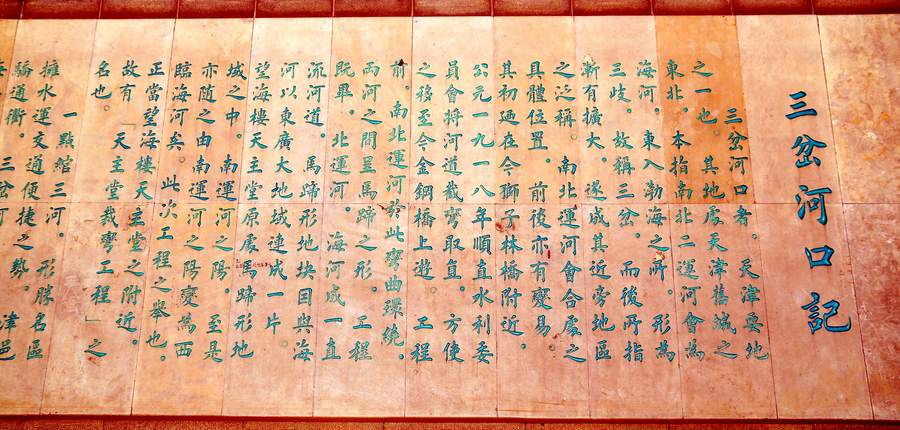 三岔河口記
三岔河口者。天津要地
之一也。其地處天津舊城之
東北。本指南北二運河會為
海河。東入渤海之所。形為
三歧。故稱三岔。而後所指
漸有擴大。遂成其近旁地區
之泛稱。南北運河會合處之
具體位置。前後亦有變易。
其初廼在今獅子林橋附近。
公元一九一八年順直水利委
員會將河道裁彎取直。方使
之移至今金鋼橋上游。工程
前。南北運河於此彎曲環繞。
兩河之間呈馬蹄之形。工程
既畢。北運河。海河成一直
流河道。馬蹄形地块因與海
河以東廣大地域連成一片
望海樓天主堂原處馬蹄形地
域之中。南運河之陽。至是
亦隨之由南運河之陽變為西
臨海河矣。此次工程之舉也。
正當望海樓天主堂之附近。
故有「天主堂裁彎工程」之
名也。
一點綰三河。形勝名區
擁水運交通便捷之勢。津邑
道衢。三岔河